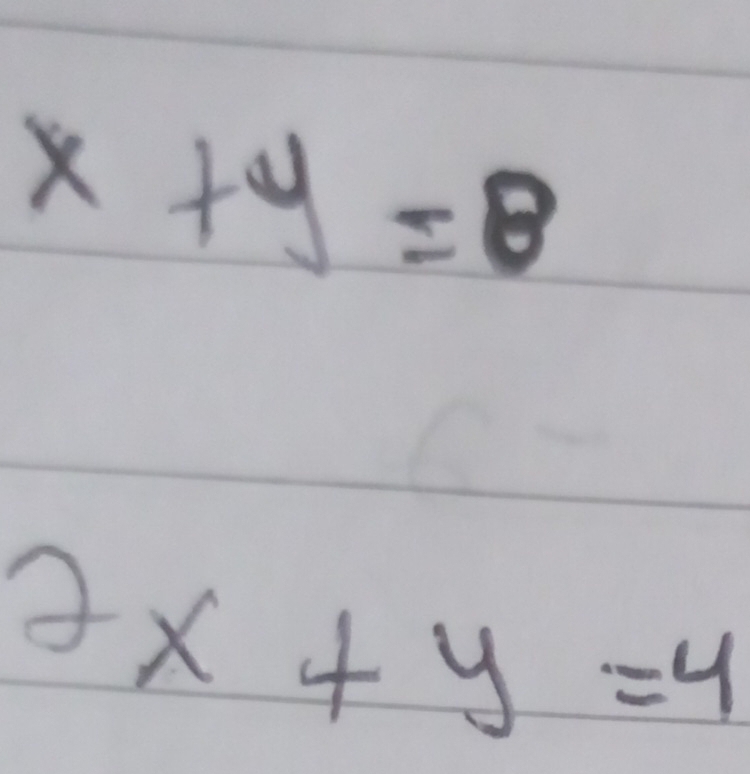 x + y = 8
2x + y = 4